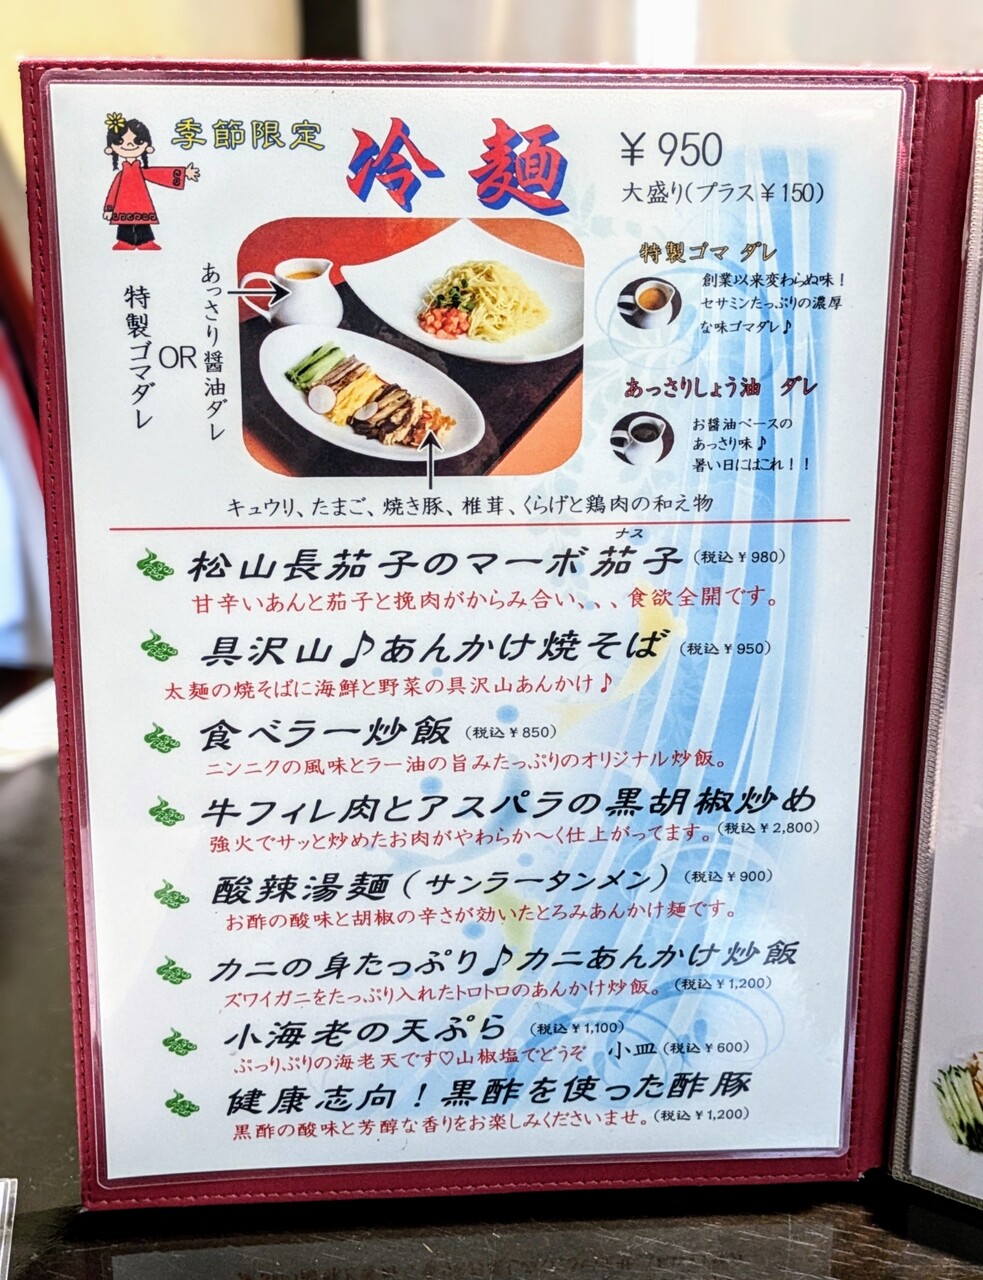 季節限定
冷麺
¥950
大盛り(プラス¥150)
特製ゴマダレ
OR
あっさり醤油ダレ
特製ゴマ ダレ
創業以来変わらぬ味!
セサミンたっぷりの濃厚
な味ゴマダレ♪
あっさりしょう油 ダレ
お醤油ベースの
あっさり味♪
暑い日にはこれ!!
キュウリ、たまご、焼き豚、椎茸、くらげと鶏肉の和え物
ナス
松山長茄子のマーボ茄子(税込¥980)
甘辛いあんと茄子と挽肉がからみ合い、、、食欲全開です。
具沢山♪あんかけ焼そば(税込¥950)
太麺の焼そばに海鮮と野菜の具沢山あんかけ♪
食べラー炒飯(税込¥850)
ニンニクの風味とラー油の旨みたっぷりのオリジナル炒飯。
牛フィレ肉とアスパラの黒胡椒炒め
強火でサッと炒めたお肉がやわらか〜く仕上がってます。(税込¥2,800)
酸辣湯麺(サンラータンメン)(税込¥900)
お酢の酸味と胡椒の辛さが効いたとろみあんかけ麺です。
カニの身たっぷり♪カニあんかけ炒飯
ズワイガニをたっぷり入れたトロトロのあんかけ炒飯。(税込¥1,200)
小海老の天ぷら(税込¥1,100)
ぷりぷりの海老天です♡山椒塩でどうぞ 小皿(税込¥600)
健康志向!黒酢を使った酢豚
黒酢の酸味と芳醇な香りをお楽しみくださいませ。(税込¥1,200)